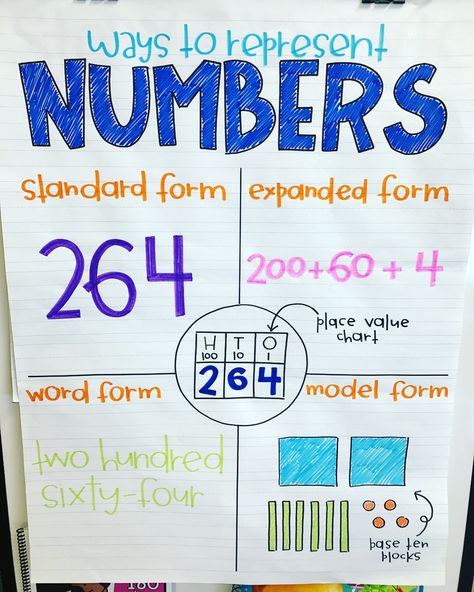 ways to represent
NUMBERS
standard form
expanded form
264
200+60+4
place value
chart
H T O
100 10 1
2 6 4
word form
model form
two hundred
sixty-four
base ten
blocks
180